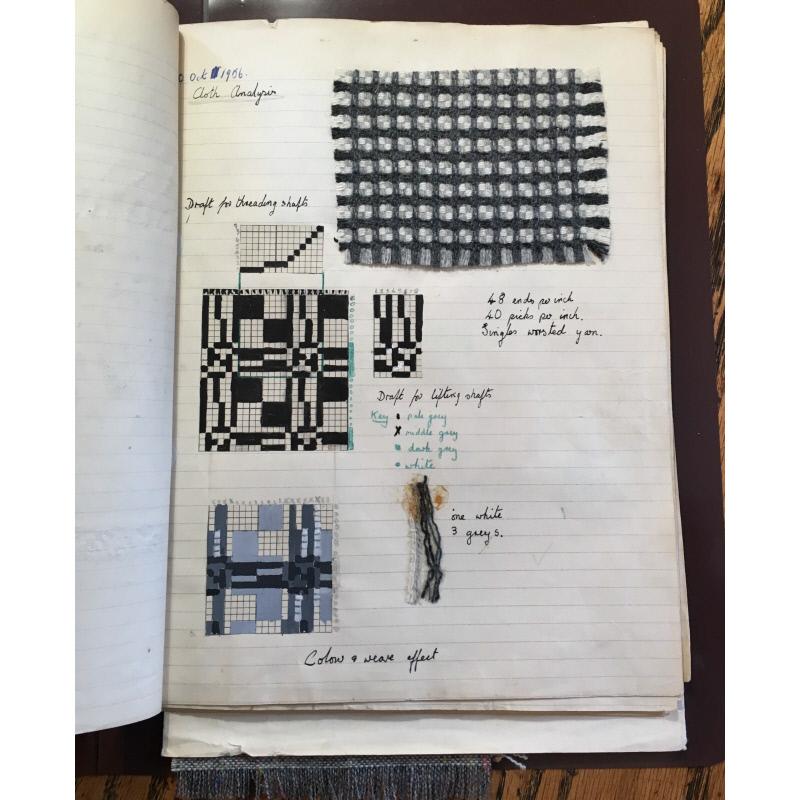 Oct 1956.
Cloth Analysis
Draft for threading shafts
48 ends per inch
40 picks per inch.
Singles worsted yarn.
Draft for lifting shafts
Key • pale grey
x middle grey
• dark grey
• white
one white
3 greys.
Colour & weave effect